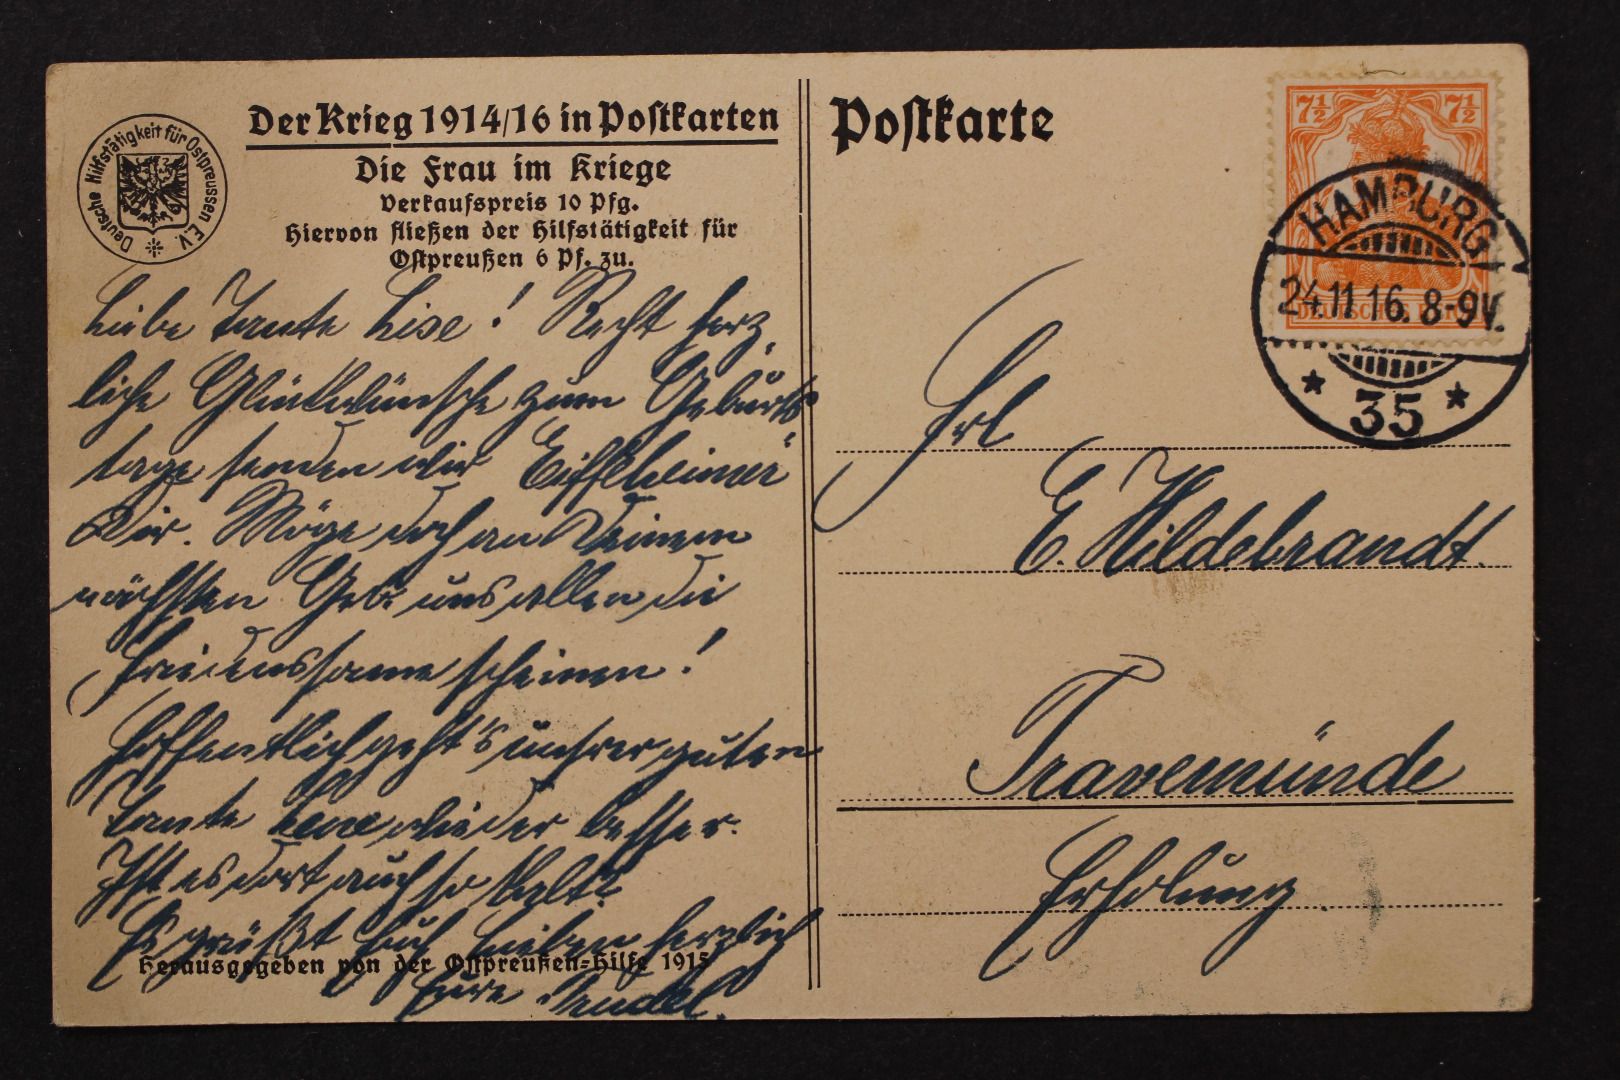 Deutsche Hilfstätigkeit für Ostpreussen E.V.
Der Krieg 1914/16 in Postkarten
Die Frau im Kriege
Verkaufspreis 10 Pfg.
Hiervon fließen der Hilfstätigkeit für
Ostpreußen 6 Pf. zu.
Liebe Tante Lise! Recht herz-
liche Glückwünsche zum Geburts-
tage senden wir
Dir. Möge doch an Deinem
nächsten Geb. uns allen die
Friedenssonne scheinen!
Hoffentlich geht's unsrer guten
Tante Lene wieder besser.
Ist es dort auch so kalt?
Es grüßt Euch Lieben herzlich
Eure
Herausgegeben von der Ostpreußen-Hilfe 1915
Postkarte
7½ 7½
DEUTSCHES REICH
HAMBURG
24.11.16. 8-9V.
* 35 *
Frl
E. Hildebrandt.
Travemünde
Erholung.